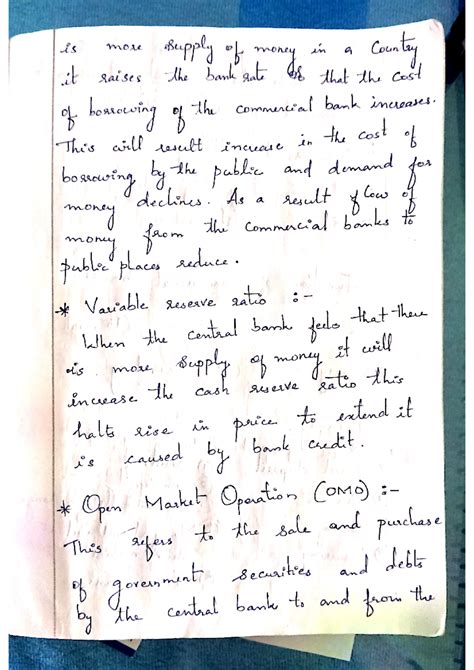 is more supply of money in a Country
it raises the bank rate so that the cost
of borrowing of the commercial bank increases.
This will result increase in the cost of
borrowing by the public and demand for
money declines. As a result flow of
money from the commercial banks to
public places reduce.
* Variable reserve ratio :-
When the central bank feels that there
is more supply of money it will
increase the cash reserve ratio this
halts rise in price to extend it
is caused by bank credit.
* Open Market Operation (OMO) :-
This refers to the sale and purchase
of government securities and debts
by the central bank to and from the